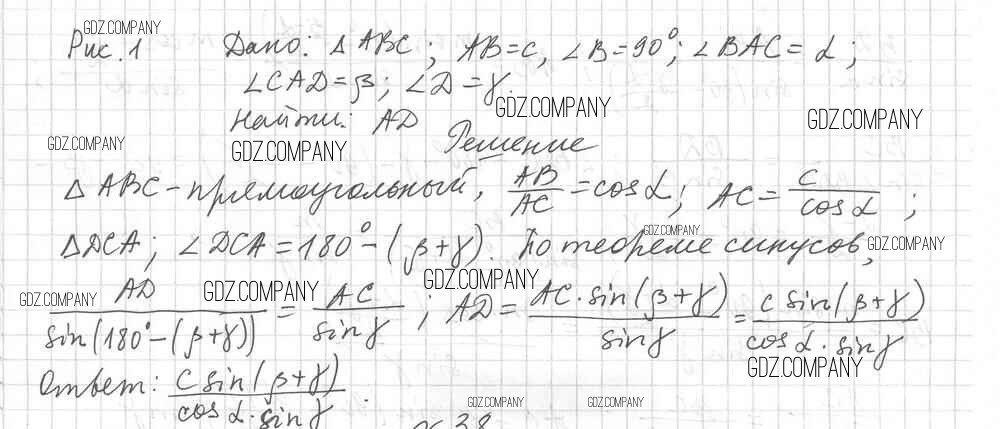 GDZ.COMPANY
Рис. 1 Дано: △ ABC; AB=c, ∠B=90°; ∠BAC=α;
∠CAD=β; ∠D=γ.
GDZ.COMPANY
Найти: AD
GDZ.COMPANY
Решение
GDZ.COMPANY GDZ.COMPANY
△ ABC - прямоугольный, AB/AC = cos α; AC = c/cos α;
GDZ.COMPANY
△DCA; ∠DCA = 180° - (β+γ). По теореме синусов,
GDZ.COMPANY
GDZ.COMPANY GDZ.COMPANY GDZ.COMPANY
AD/sin(180° - (β+γ)) = AC/sin γ; AD = AC·sin(β+γ)/sin γ = c sin(β+γ)/cos α · sin γ
GDZ.COMPANY
Ответ: c sin(β+γ)/cos α · sin γ.
GDZ.COMPANY GDZ.COMPANY